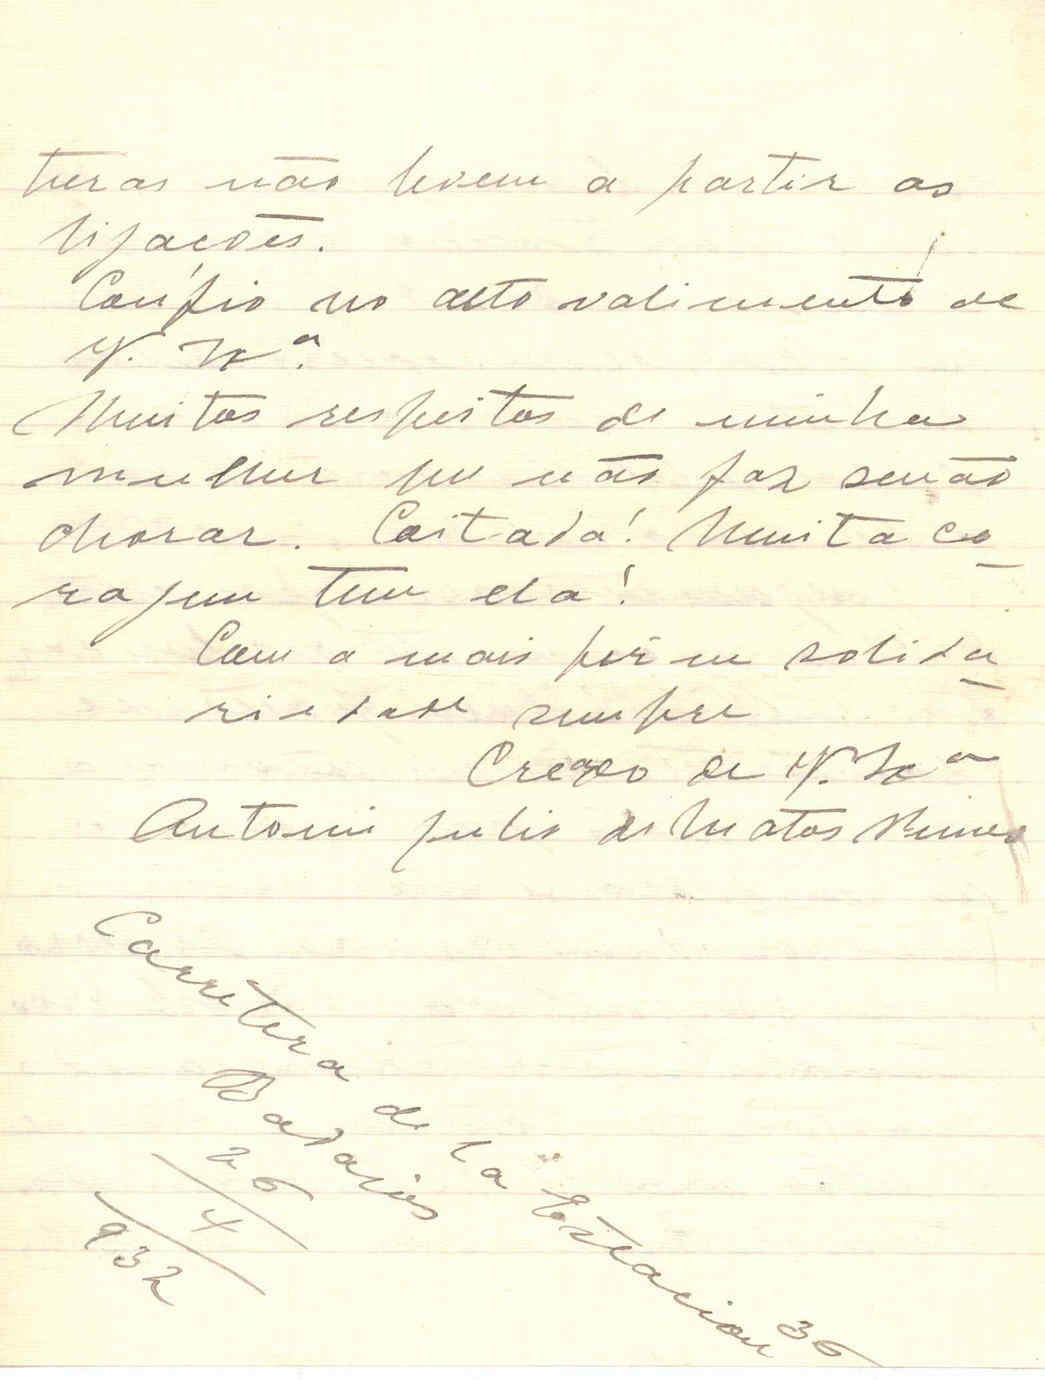 teras não levem a partir as
ligações.
Confio no alto valimento de
V. Exª.
Muitos respeitos de minha
mulher que não faz senão
chorar. Coitada! Muita co-
ragem tem ela!
Com a mais firme solida-
riedade sempre
Creado de V. Exª
Antonio Julio de Matos
Carretera de la Estacion 36
Badajos
26
4
932